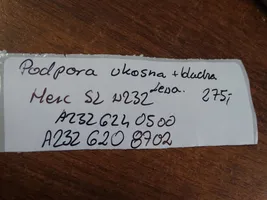 Podpora ukosna + bludna
lewa.
Merc SL W232 275,-
A232 624 0500
A232 620 8702